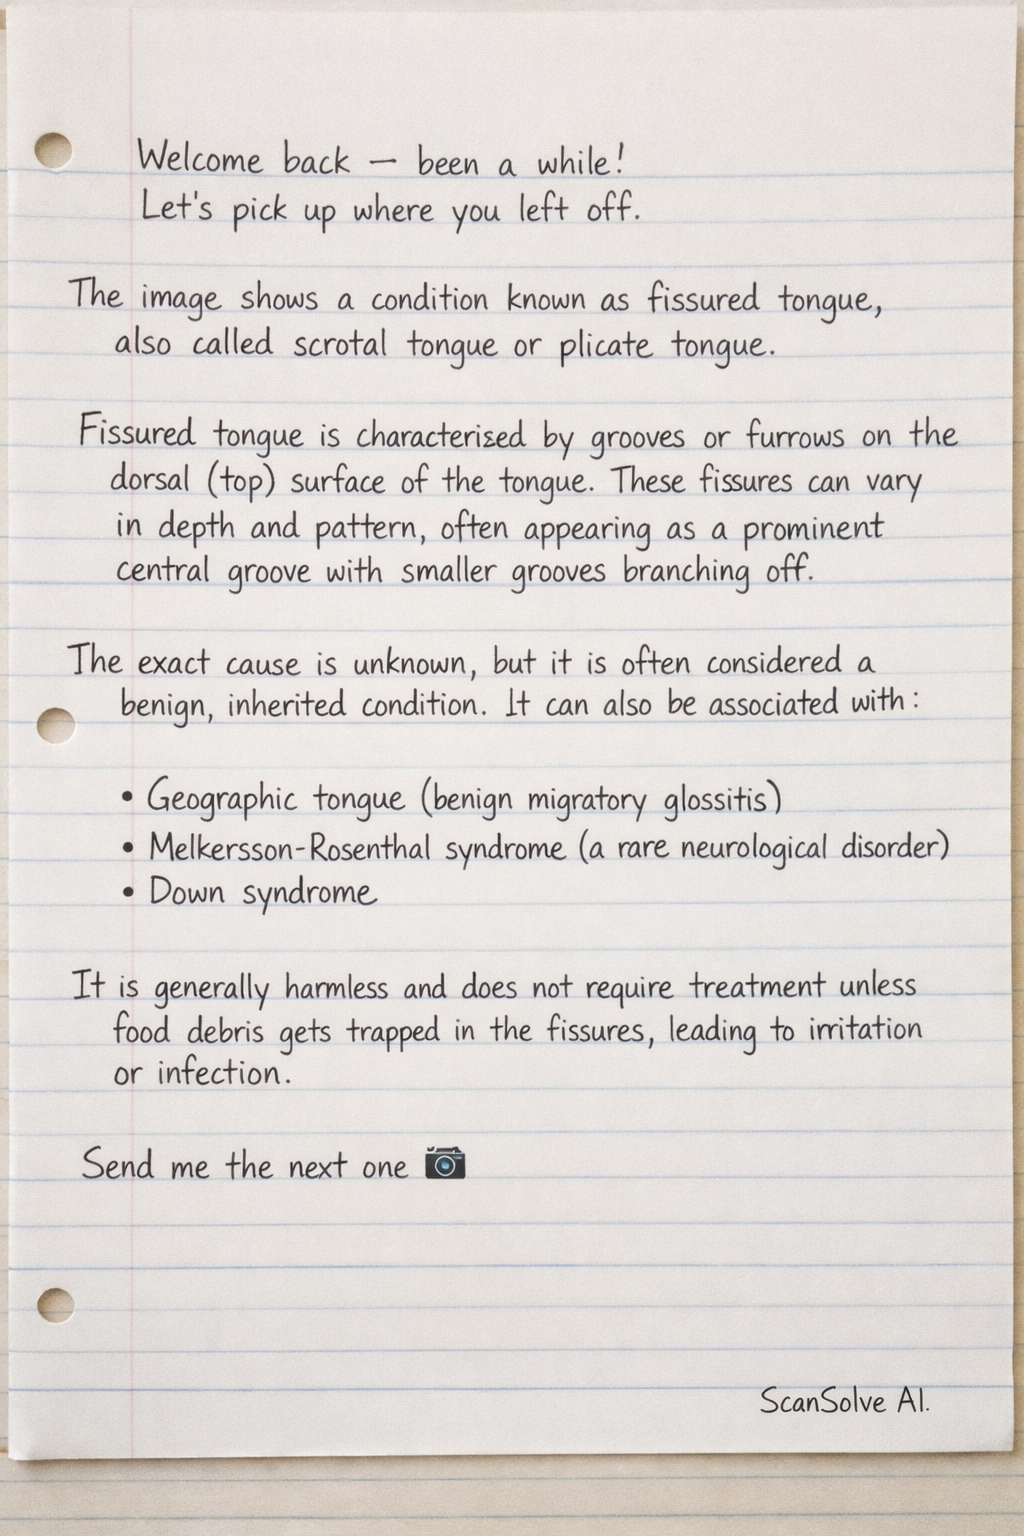 Welcome back — been a while!
Let's pick up where you left off.
The image shows a condition known as fissured tongue,
also called scrotal tongue or plicate tongue.
Fissured tongue is characterised by grooves or furrows on the
dorsal (top) surface of the tongue. These fissures can vary
in depth and pattern, often appearing as a prominent
central groove with smaller grooves branching off.
The exact cause is unknown, but it is often considered a
benign, inherited condition. It can also be associated with:
• Geographic tongue (benign migratory glossitis)
• Melkersson-Rosenthal syndrome (a rare neurological disorder)
• Down syndrome
It is generally harmless and does not require treatment unless
food debris gets trapped in the fissures, leading to irritation
or infection.
Send me the next one 📷
ScanSolve AI.